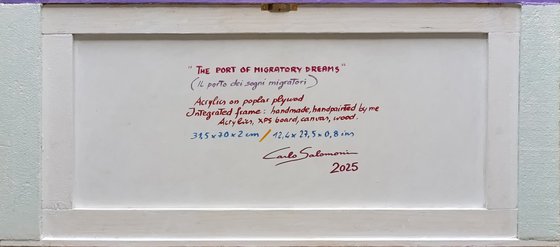 "THE PORT OF MIGRATORY DREAMS"
(IL porto dei sogni migratori)
Acrylics on poplar plywod
Integrated frame: handmade, handpainted by me
Acrylics, XPS board, canvas, wood.
33,5 x 70 x 2 cm / 13,4 x 27,5 x 0,8 ins
Carlo Salomoni
2025